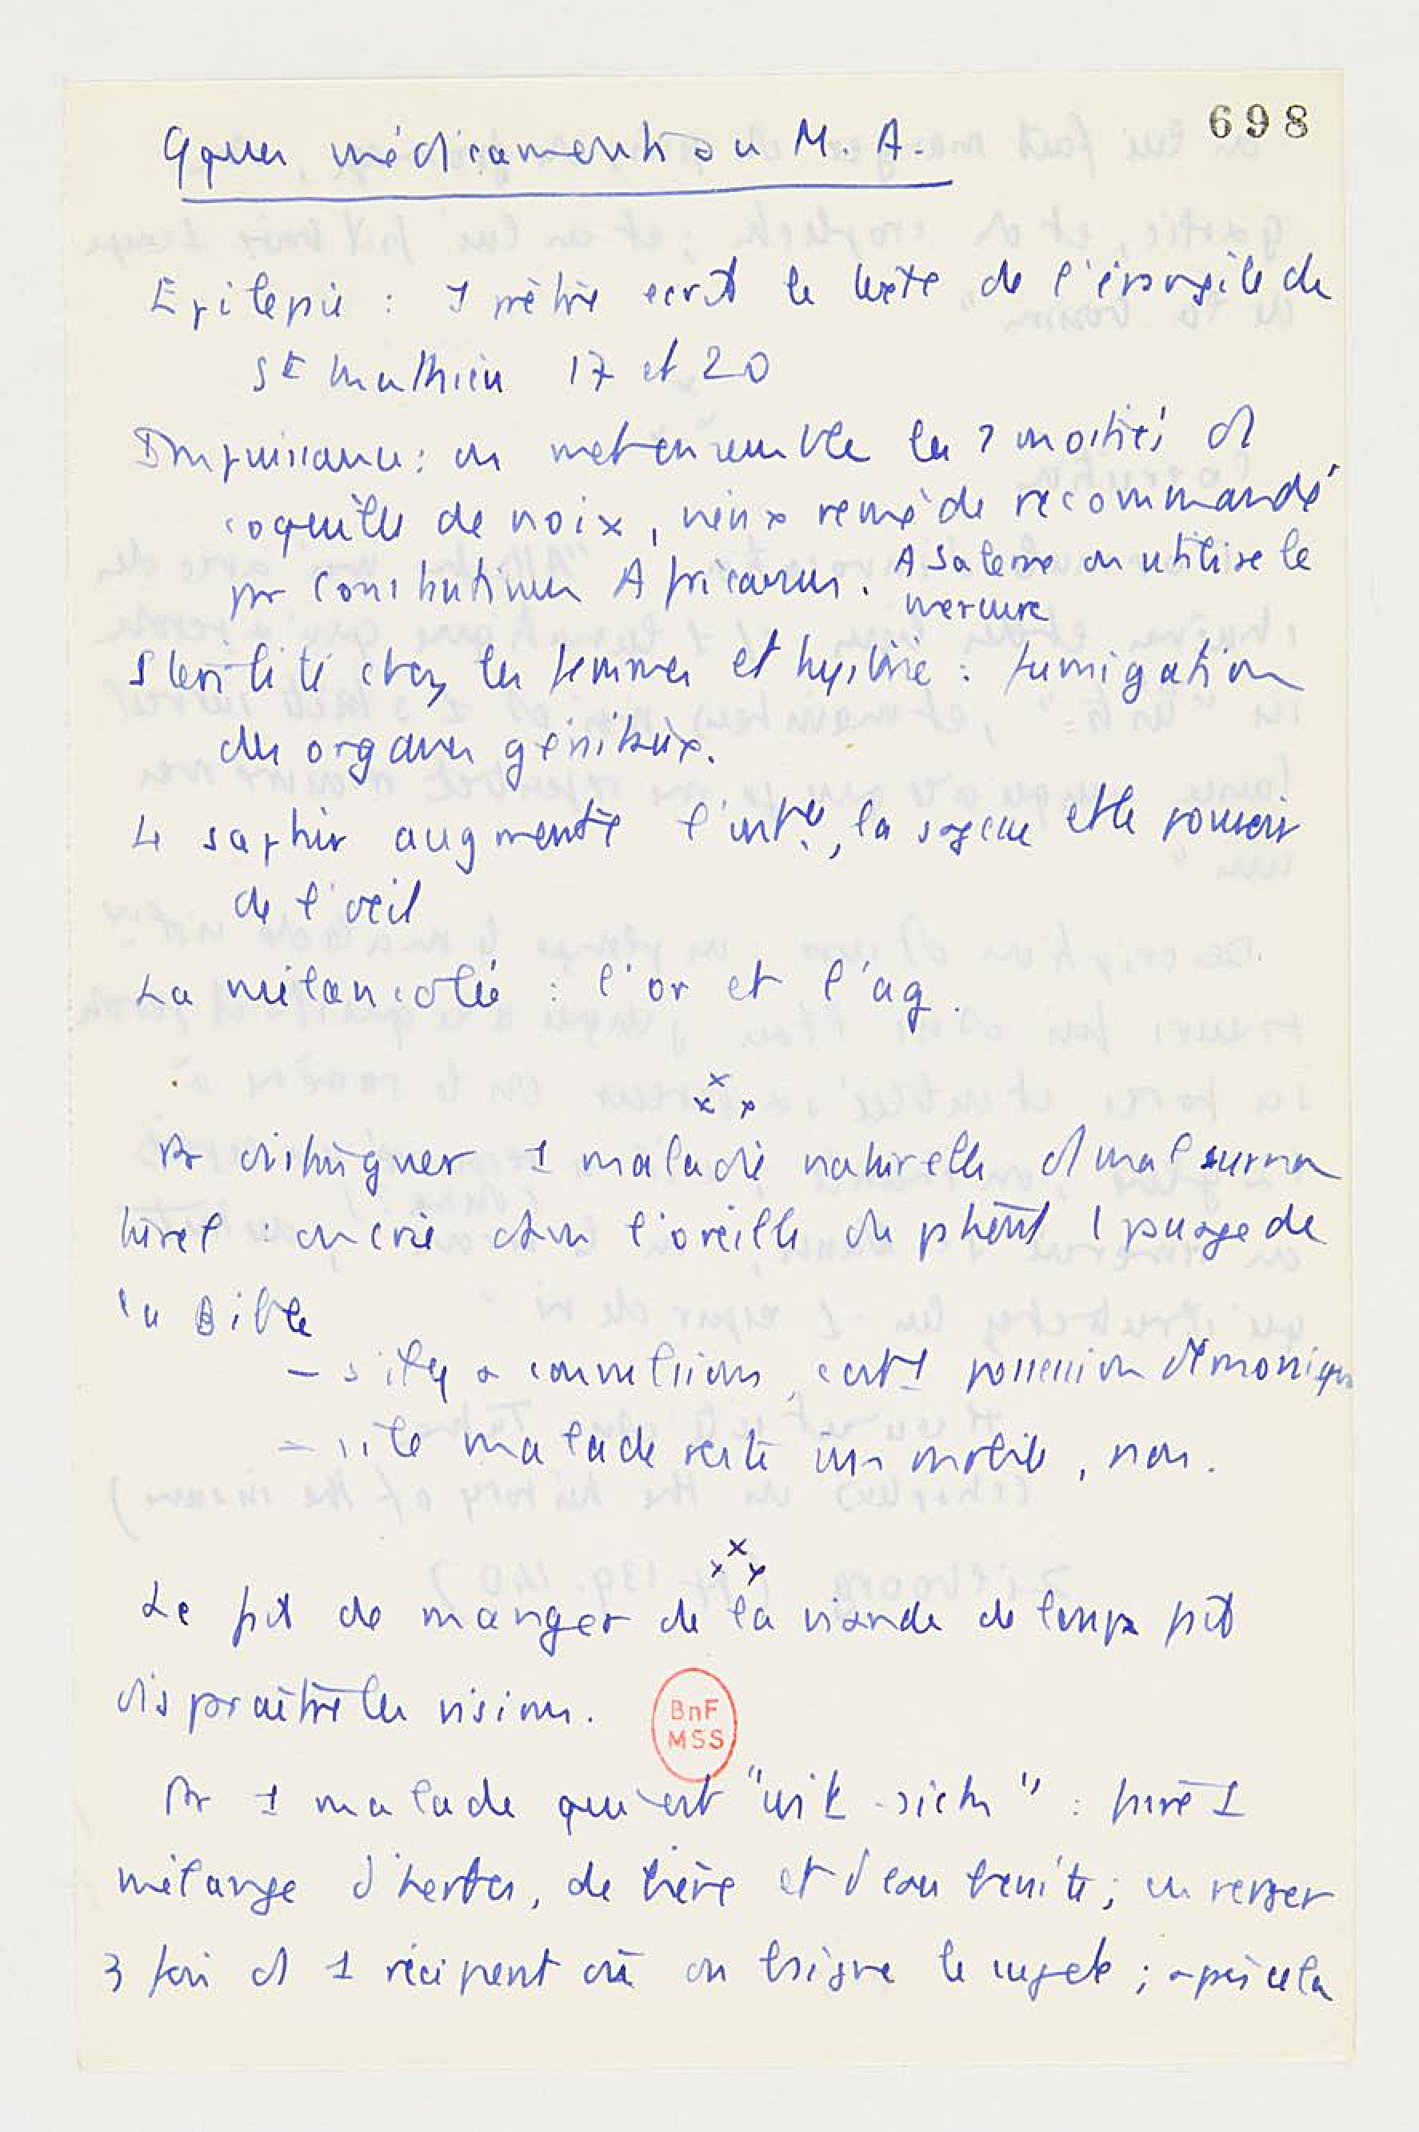 698
Qques médicaments au M. A.
Epilepsie : 1 prêtre écrit le texte de l'évangile de
St Mathieu 17 et 20
Impuissance : on met ensemble les 2 moitiés d
coquilles de noix, vieux remède recommandé
pr Constantinus Africanus. A Salerne on utilise le
mercure
Stérilité chez les femmes et hystérie : fumigation
des organes génitaux.
Le saphir augmente l', la sagesse et le pouvoir
de l'oeil
La mélancolie : l'or et l'ag.
x
x x
Pr distinguer 1 maladie naturelle, d mal surna
turel on crie dans l'oreille du patient 1 passage de
la Bible
– s'il y a convulsions, c'est 1 possession démoniaque
– si le malade reste immobile, non.
x
x x
Le fait de manger de la viande de loup fait
disparaître les visions.
Pr 1 malade qui est : faire 1
mélange d'herbes, de bière et d'eau bénite ; en verser
3 fois ds 1 récipient où on baigne le sujet ; après cela
BnF
MSS